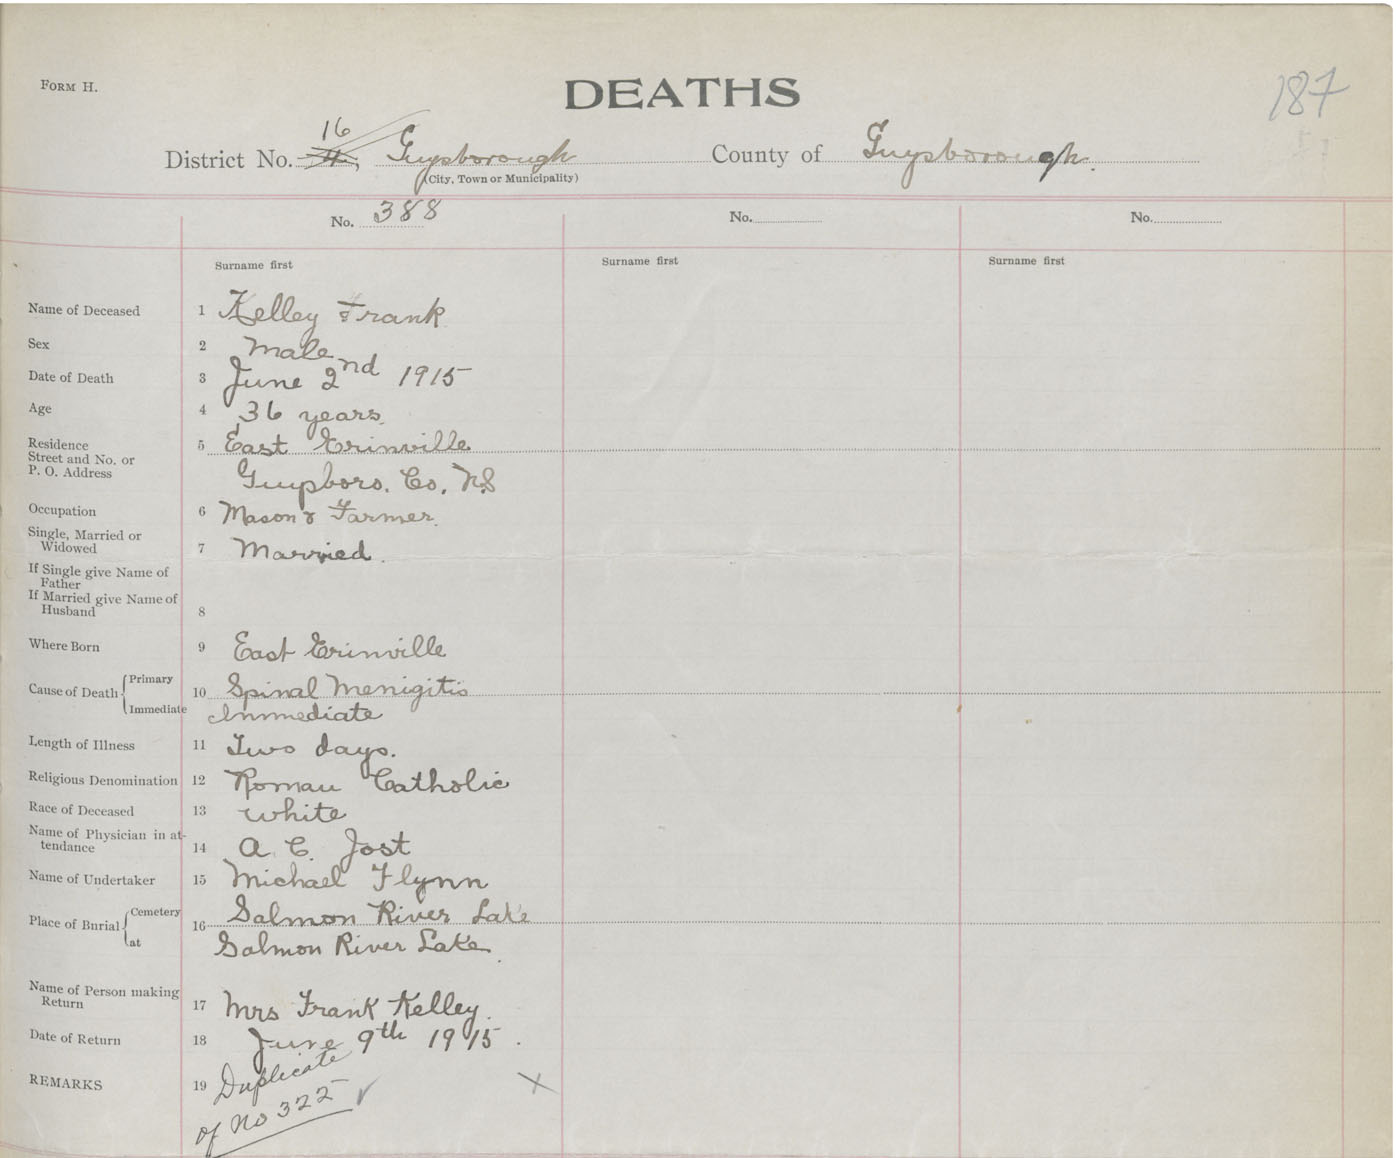 FORM H.
DEATHS
187
16
District No. 4, Guysborough County of Guysborough.
(City, Town or Municipality)
No. 388 No. No.
Surname first Surname first Surname first
Name of Deceased 1 Kelley Frank
Sex 2 Male
Date of Death 3 June 2nd 1915
Age 4 36 years.
Residence 5 East Erinville
Street and No. or
P. O. Address Guysboro. Co. N.S
Occupation 6 Mason & Farmer.
Single, Married or
Widowed 7 Married.
If Single give Name of
Father
If Married give Name of
Husband 8
Where Born 9 East Erinville
Cause of Death { Primary 10 Spinal Menigitis
Immediate Immediate
Length of Illness 11 Two days.
Religious Denomination 12 Roman Catholic
Race of Deceased 13 White
Name of Physician in at-
tendance 14 A. C. Jost
Name of Undertaker 15 Michael Flynn
Place of Burial { Cemetery 16 Salmon River Lake
at Salmon River Lake.
Name of Person making
Return 17 Mrs Frank Kelley.
Date of Return 18 June 9th 1915.
REMARKS 19 Duplicate
of No 322